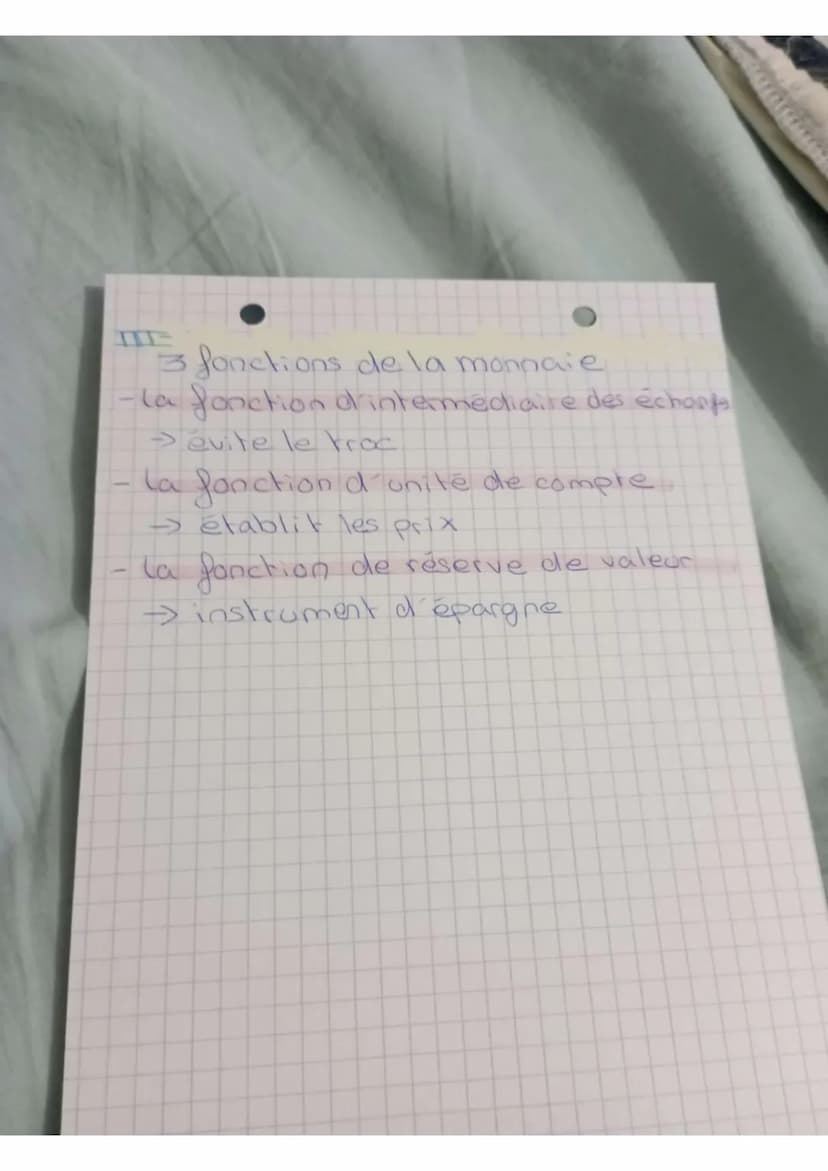 III-
3 fonctions de la monnaie
- La fonction d'intermédiaire des échanges
→ évite le troc
- La fonction d'unité de compte
→ établit les prix
- La fonction de réserve de valeur
→ instrument d'épargne